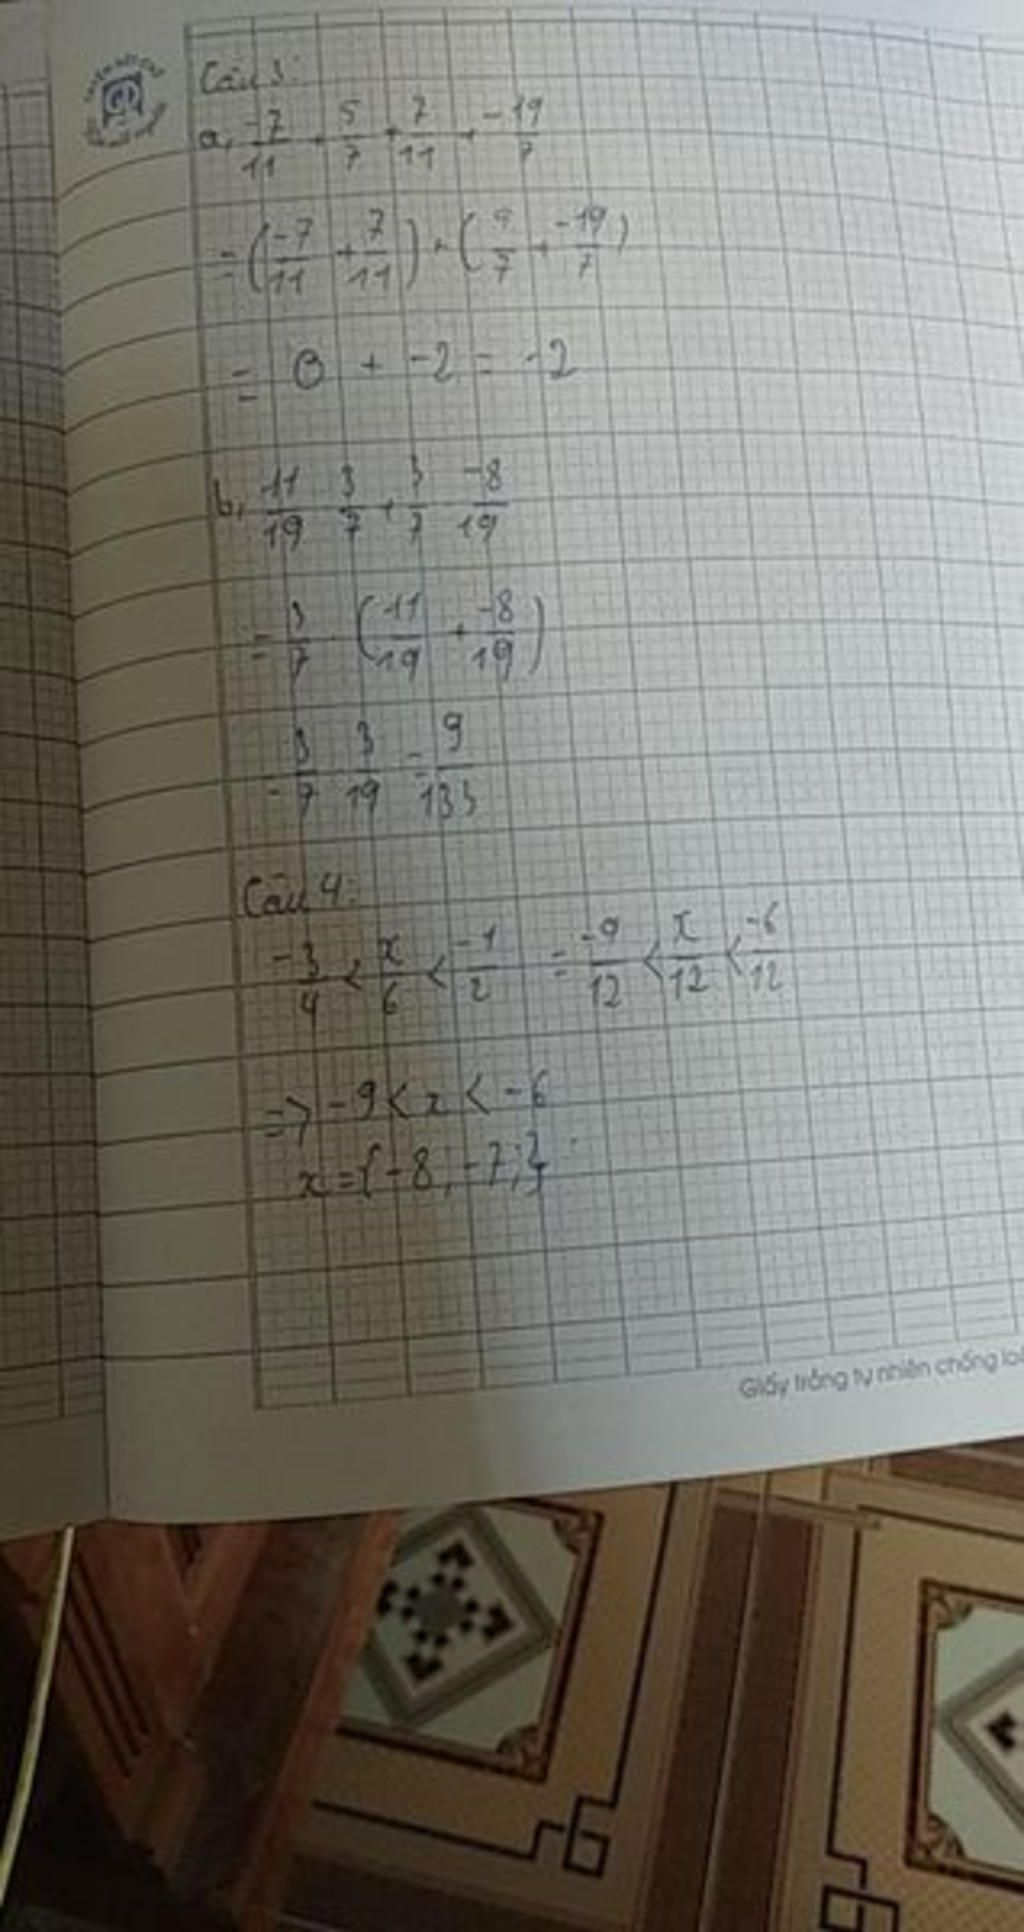 Câu 3:
a, -7/11 + 5/7 + 7/11 + -19/7
= (-7/11 + 7/11) + (5/7 + -19/7)
= 0 + -2 = -2
b, 11/19 . 3/7 + 3/7 . -8/19
= 3/7 . (11/19 + -8/19)
= 3/7 . 3/19 = 9/133
Câu 4:
-3/4 < x/6 < -1/2 = -9/12 < x/12 < -6/12
=> -9 < x < -6
x = {-8; -7;}
Giấy trắng tự nhiên chống